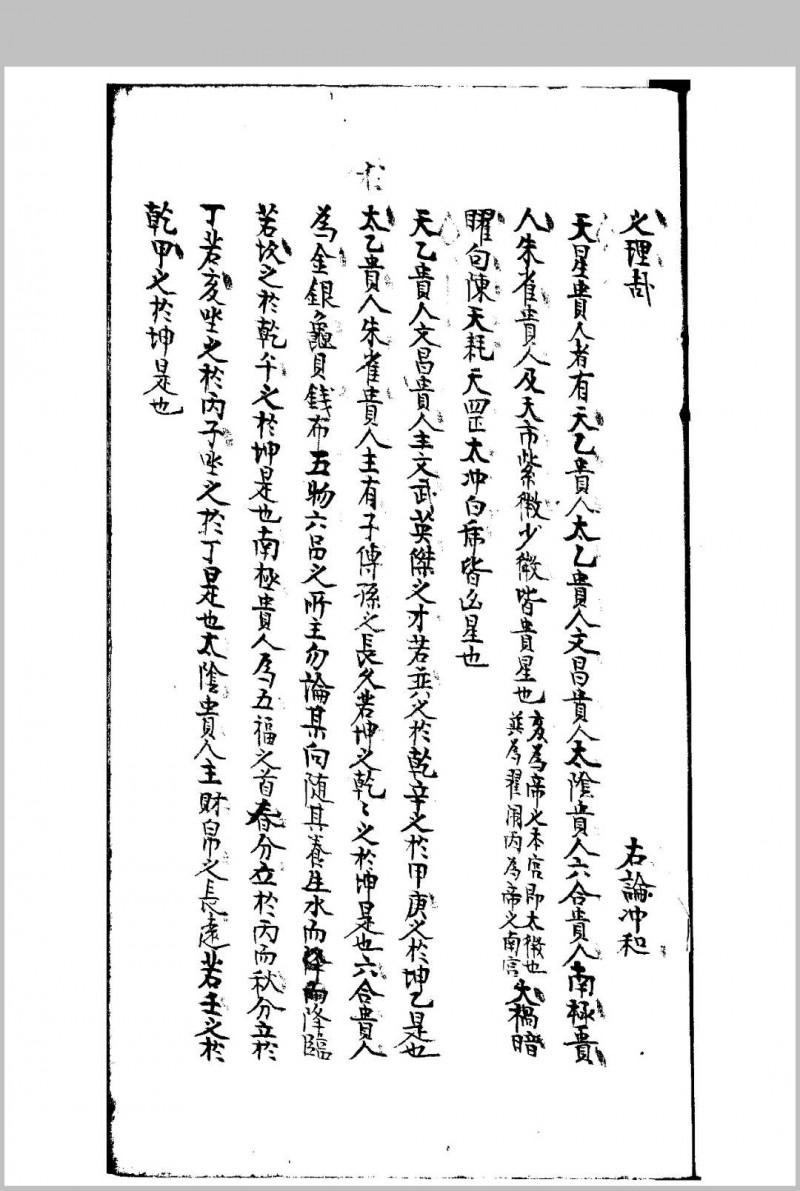 之理哉　右論冲和
天星貴人者有天乙貴人太乙貴人文昌貴人太陰貴人六合貴人南極貴
人朱雀貴人及天市紫微少微皆貴星也亥為帝之本宮即太微也
巽為翟 丙為帝之南宮天禍暗
曜勾陳天耗天罡太冲白虎皆凶星也
天乙貴人文昌貴人主文武英傑之才若 之於乾辛之於甲庚之於坤乙是也
太乙貴人朱雀貴人主有子傳孫之長久若坤之乾乾之於坤是也六合貴人
為金銀龜貝錢布五物六品之所主勿論某向随其養生水而降臨
若坎之於乾午之於坤是也南極貴人為五福之首春分立於丙而秋分立於
丁若亥坐之於丙子坐之於丁是也太陰貴人主財帛之長遠若壬之於
乾甲之於坤是也